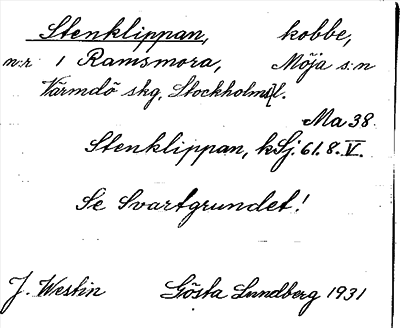 Stenklippan, kobbe,
n:r 1 Ramsmora, Möja s:n
Värmdö skg, Stockholms l.
Ma 38
Stenklippan, kSj. 61. 8. V.
Se Svartgrundet!
J. Westin Gösta Lundberg 1931